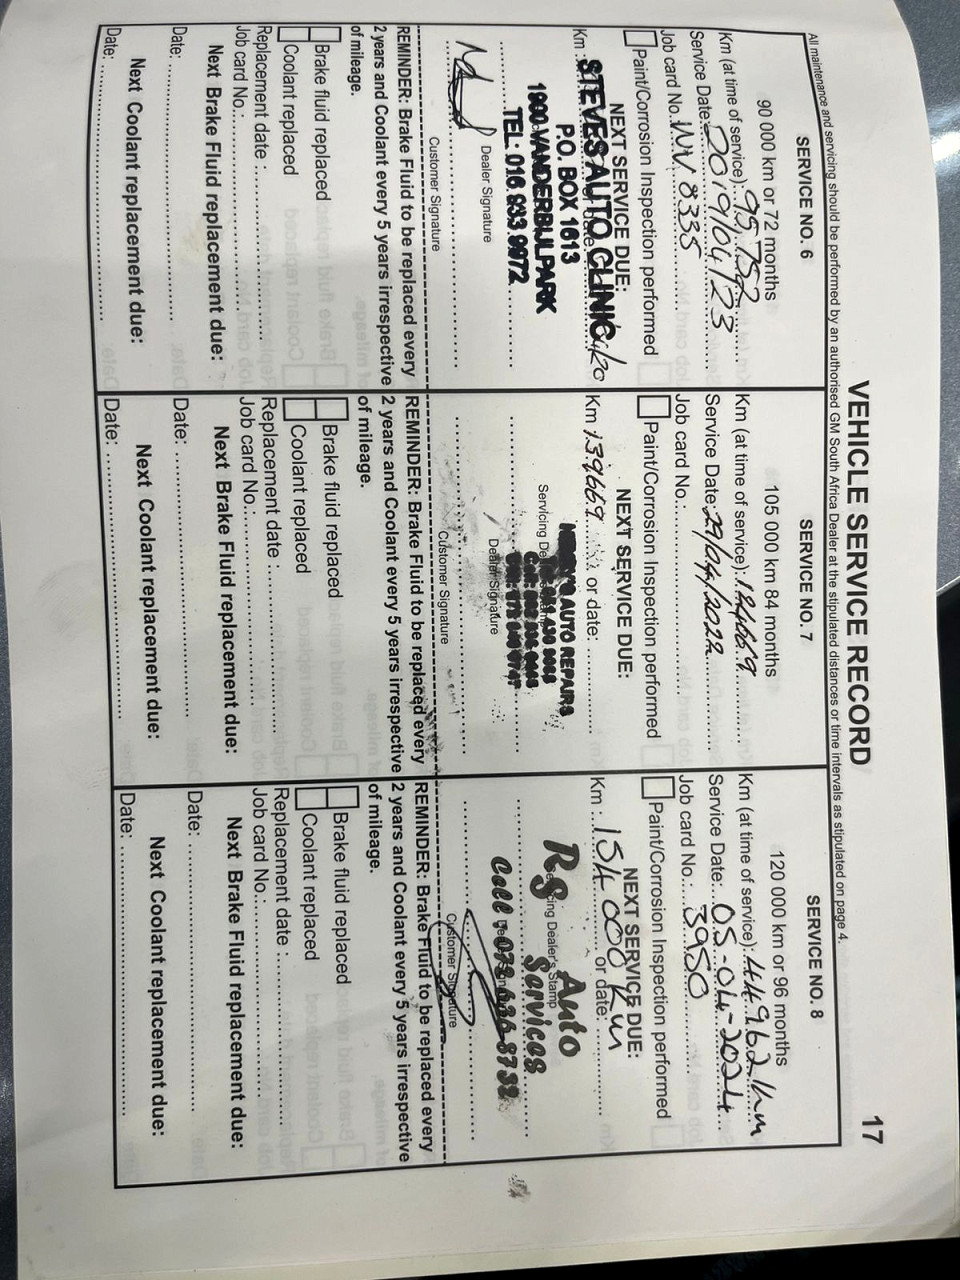 VEHICLE SERVICE RECORD
17
All maintenance and servicing should be performed by an authorised GM South Africa Dealer at the stipulated distances or time intervals as stipulated on page 4.
SERVICE NO. 6
90 000 km or 72 months
Km (at time of service): 95,752
Service Date: 2019/04/23
Job card No. INV 8335
Paint/Corrosion Inspection performed
NEXT SERVICE DUE:
Km :
STEVES AUTO CLINIC
P.O. BOX 1613
1900 VANDERBIJLPARK
TEL: 016 933 9972
Dealer Signature
Customer Signature
REMINDER: Brake Fluid to be replaced every
2 years and Coolant every 5 years irrespective
of mileage.
Brake fluid replaced
Coolant replaced
Replacement date :
Job card No.:
Next Brake Fluid replacement due:
Date:
Next Coolant replacement due:
Date:
SERVICE NO. 7
105 000 km 84 months
Km (at time of service): 124669
Service Date: 29/04/2022
Job card No.:
Paint/Corrosion Inspection performed
NEXT SERVICE DUE:
Km 139669 or date:
AUTO REPAIRS
Servicing
Dealer Signature
Customer Signature
REMINDER: Brake Fluid to be replaced every
2 years and Coolant every 5 years irrespective
of mileage.
Brake fluid replaced
Coolant replaced
Replacement date :
Job card No.
Next Brake Fluid replacement due:
Date:
Next Coolant replacement due:
Date:
SERVICE NO. 8
120 000 km or 96 months
Km (at time of service): 144962 km
Service Date: 05-04-2024
Job card No.: 3950
Paint/Corrosion Inspection performed
NEXT SERVICE DUE:
Km : 154 000 km or date:
RS Auto
Servicing Dealer's Stamp
Services
Cell : 073 636 8732
Customer Signature
REMINDER: Brake Fluid to be replaced every
2 years and Coolant every 5 years irrespective
of mileage.
Brake fluid replaced
Coolant replaced
Replacement date :
Job card No.:
Next Brake Fluid replacement due:
Date:
Next Coolant replacement due:
Date: